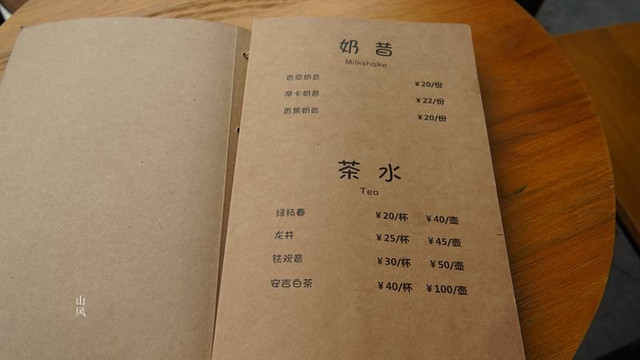 奶昔
Milkshake
香草奶昔 ¥20/份
摩卡奶昔 ¥22/份
香蕉奶昔 ¥20/份
茶水
Tea
绿杨春 ¥20/杯 ¥40/壶
龙井 ¥25/杯 ¥45/壶
铁观音 ¥30/杯 ¥50/壶
安吉白茶 ¥40/杯 ¥100/壶
山风